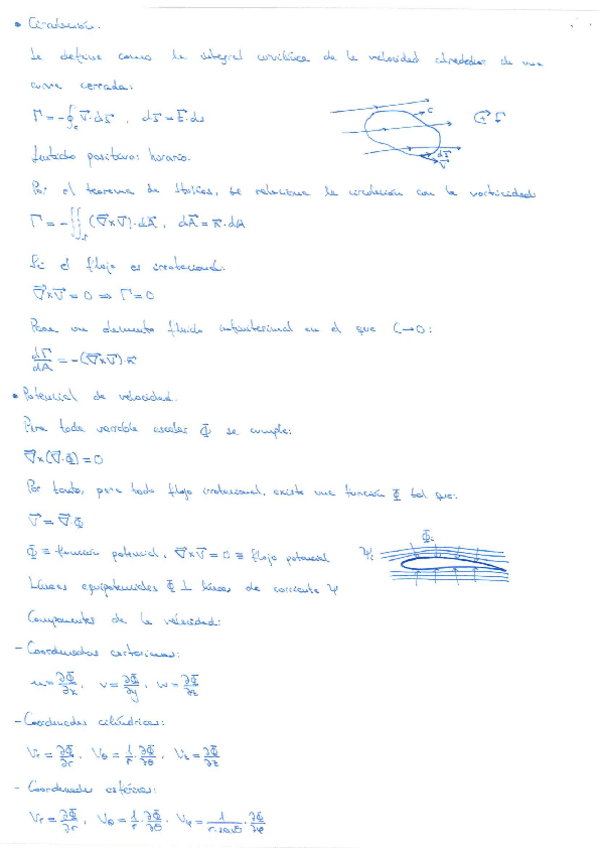 • Circulación.
Se define como la integral curvilínea de la velocidad alrededor de una
curva cerrada:
Γ = -∮_c V⃗·ds⃗ , ds⃗ = t⃗·ds
C
+ Γ
ds⃗
V⃗
Sentido positivo: horario.
Por el teorema de Stokes, se relaciona la circulación con la vorticidad
Γ = -∬_S (∇⃗×V⃗)·dA⃗ , dA⃗ = n⃗·dA
Si el flujo es irrotacional:
∇⃗×V⃗ = 0 ⇒ Γ = 0
Para un elemento fluido infinitesimal en el que C→0:
dΓ/dA = -(∇⃗×V⃗)·n⃗
• Potencial de velocidad.
Para toda variable escalar Φ se cumple:
∇⃗×(∇⃗·Φ) = 0
Por tanto, para todo flujo irrotacional, existe una función Φ tal que:
V⃗ = ∇⃗·Φ
Φ ≡ función potencial, ∇⃗×V⃗ = 0 ≡ flujo potencial
Ψi
Φi
Líneas equipotenciales Φ ⊥ líneas de corriente Ψ
Componentes de la velocidad:
- Coordenadas cartesianas:
u = ∂Φ/∂x , v = ∂Φ/∂y , w = ∂Φ/∂z
- Coordenadas cilíndricas:
Vr = ∂Φ/∂r , Vθ = 1/r·∂Φ/∂θ , Vz = ∂Φ/∂z
- Coordenadas esféricas:
Vr = ∂Φ/∂r , Vθ = 1/r·∂Φ/∂θ , Vφ = 1/(r·senθ)·∂Φ/∂φ